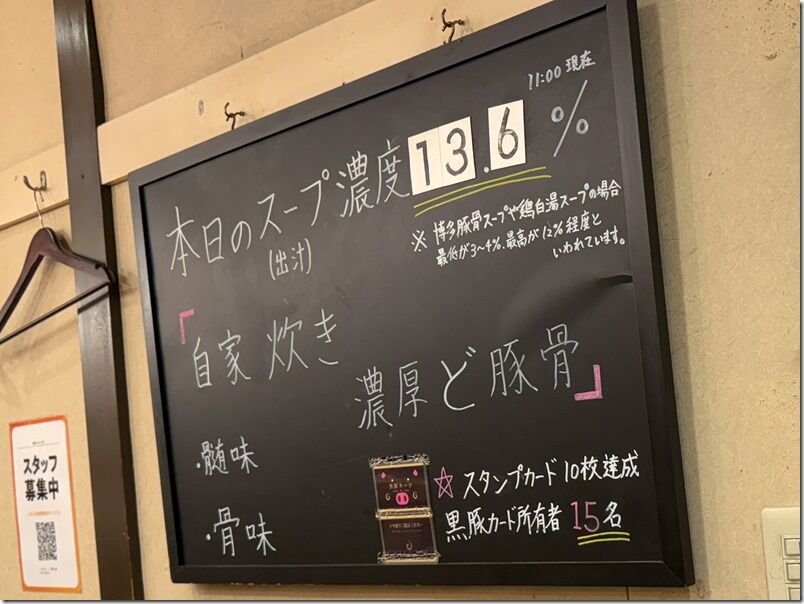 11:00 現在
本日のスープ濃度 13.6 %
(出汁)
※ 博多豚骨スープや鶏白湯スープの場合
最低が3〜4%、最高が12%程度と
いわれています。
「自家炊き
濃厚ど豚骨」
・髄味
・骨味
☆ スタンプカード10枚達成
黒豚カード所有者 15名
黒豚カード
G G
スタッフ
募集中